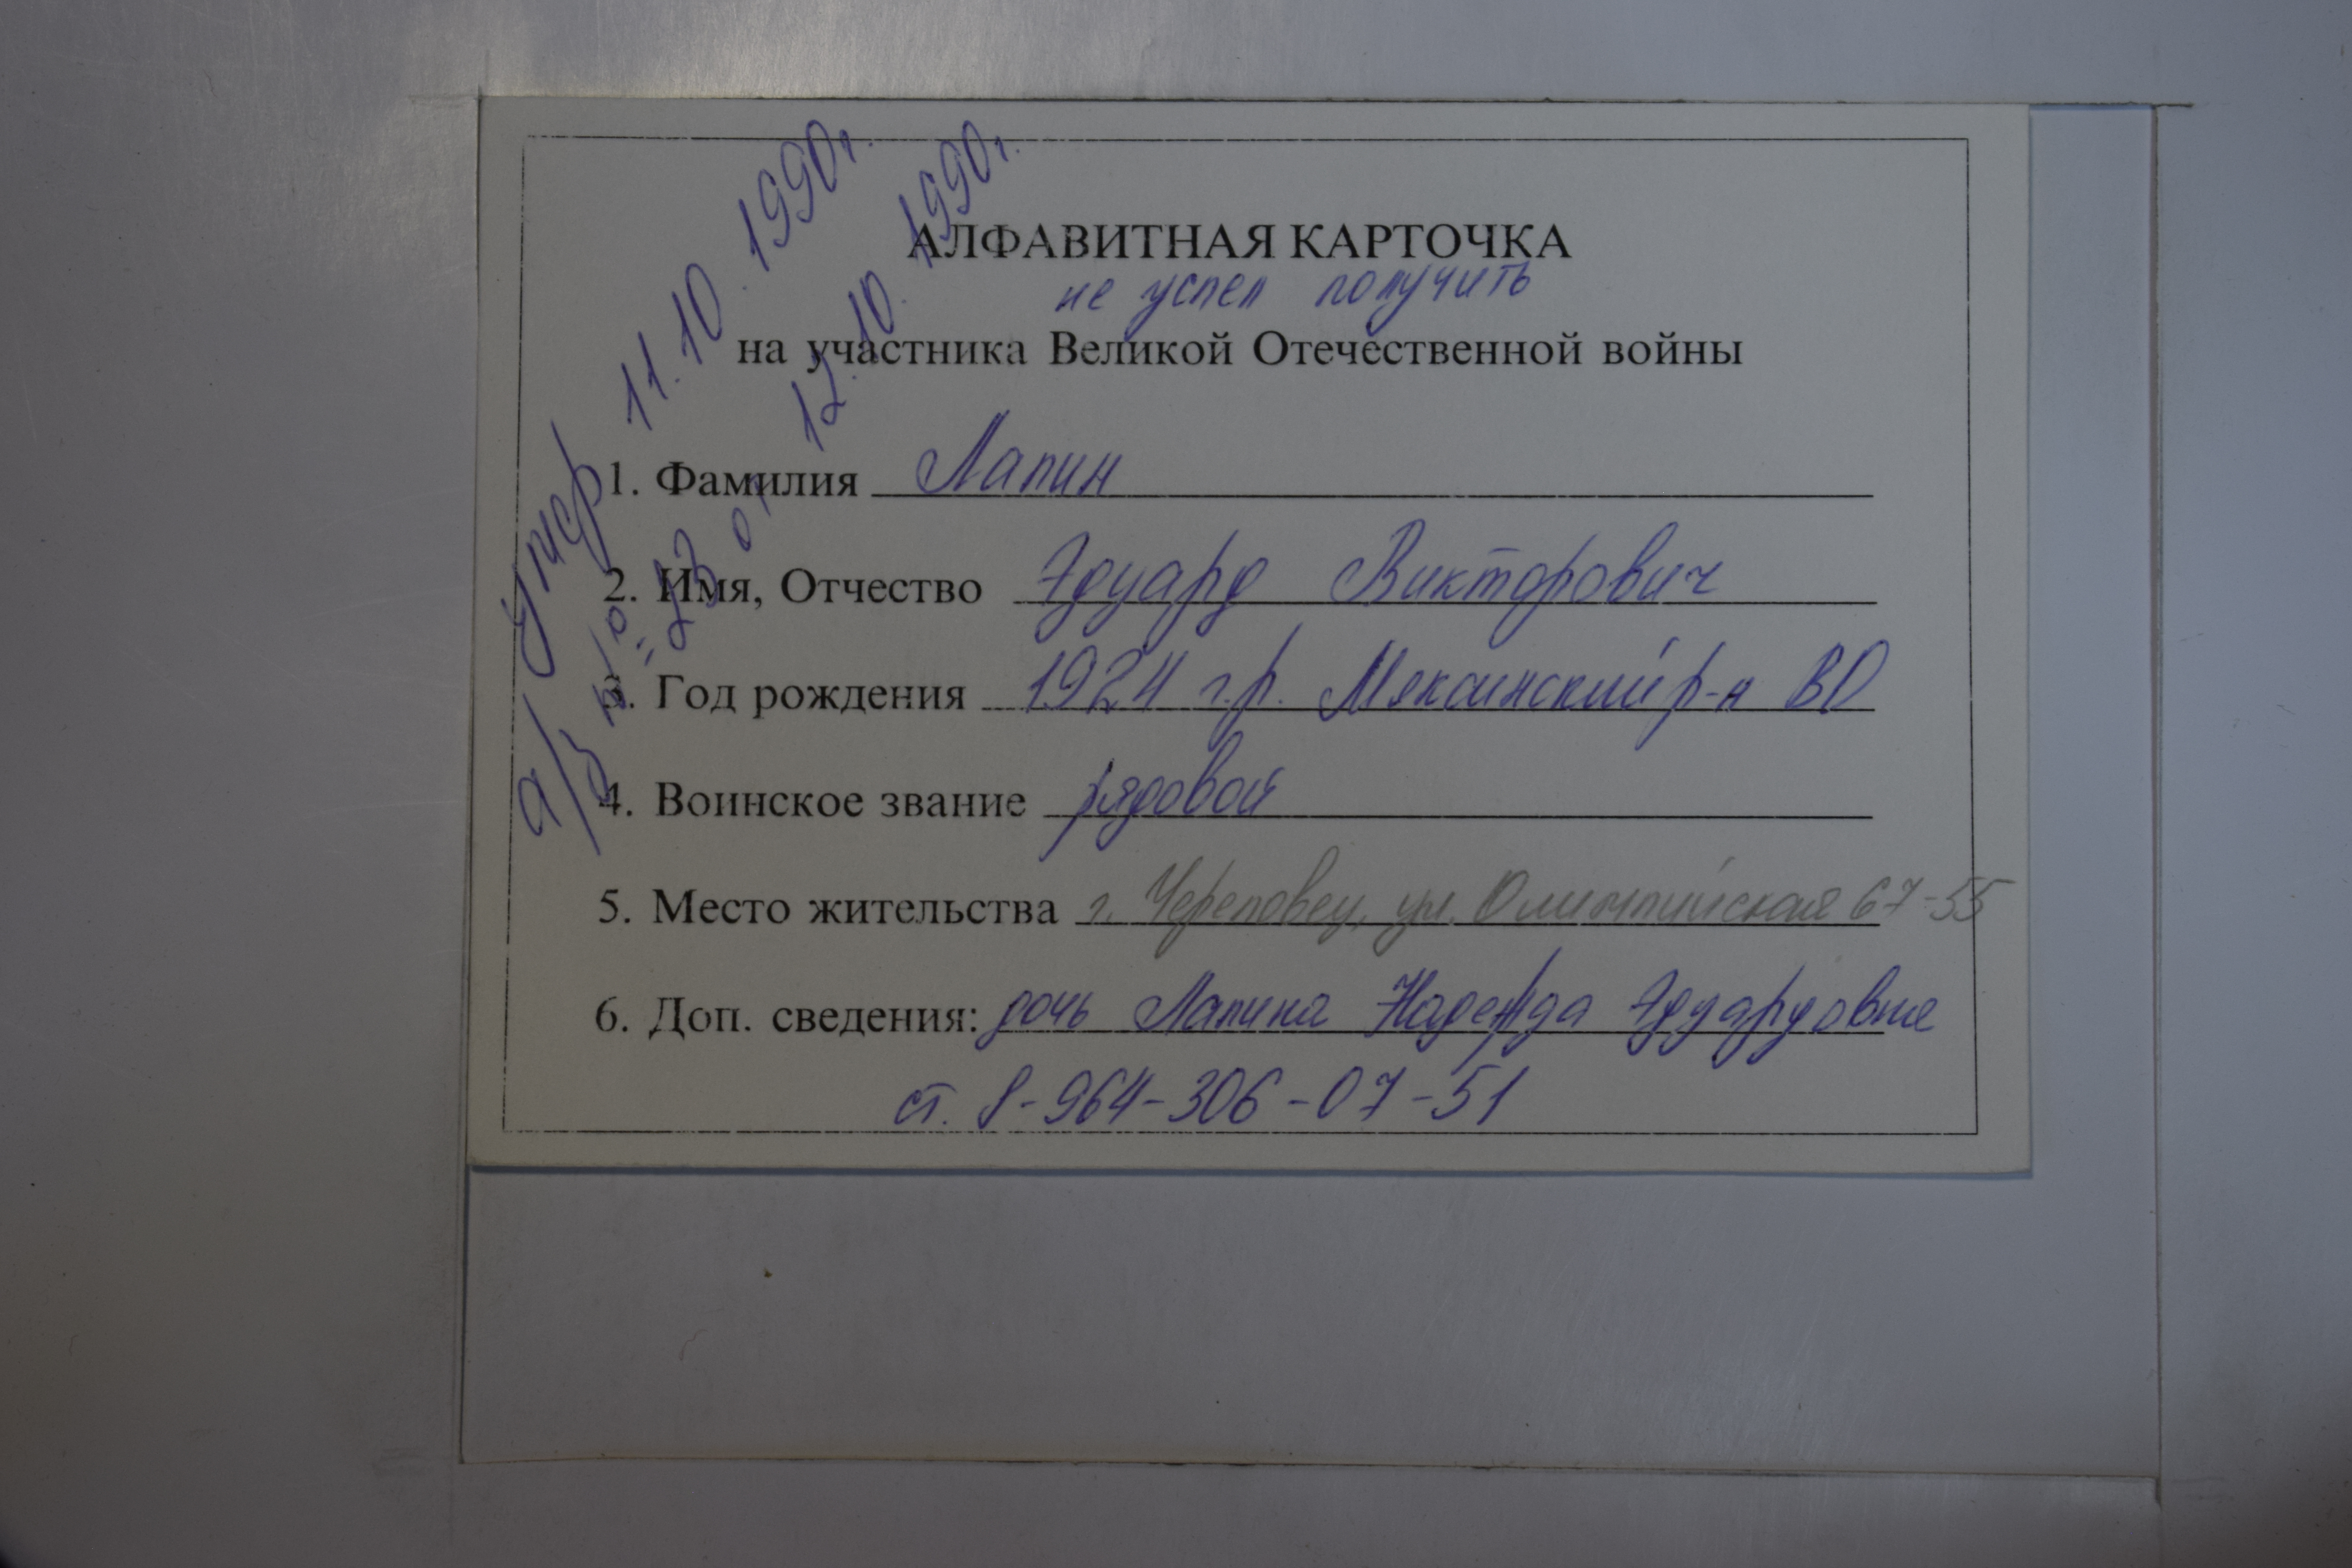 АЛФАВИТНАЯ КАРТОЧКА
не успел получить
на участника Великой Отечественной войны
1. Фамилия Лапин
2. Имя, Отчество Эдуард Викторович
3. Год рождения 1924 г.р. Мяксинский р-н ВО
4. Воинское звание рядовой
5. Место жительства г. Череповец, ул. Олимпийская 67-55
6. Доп. сведения: дочь Лапина Надежда Эдуардовне
ст. 8-964-306-07-51
Умер 11.10.1990г.
а/з № 23 от 12.10.1990г.